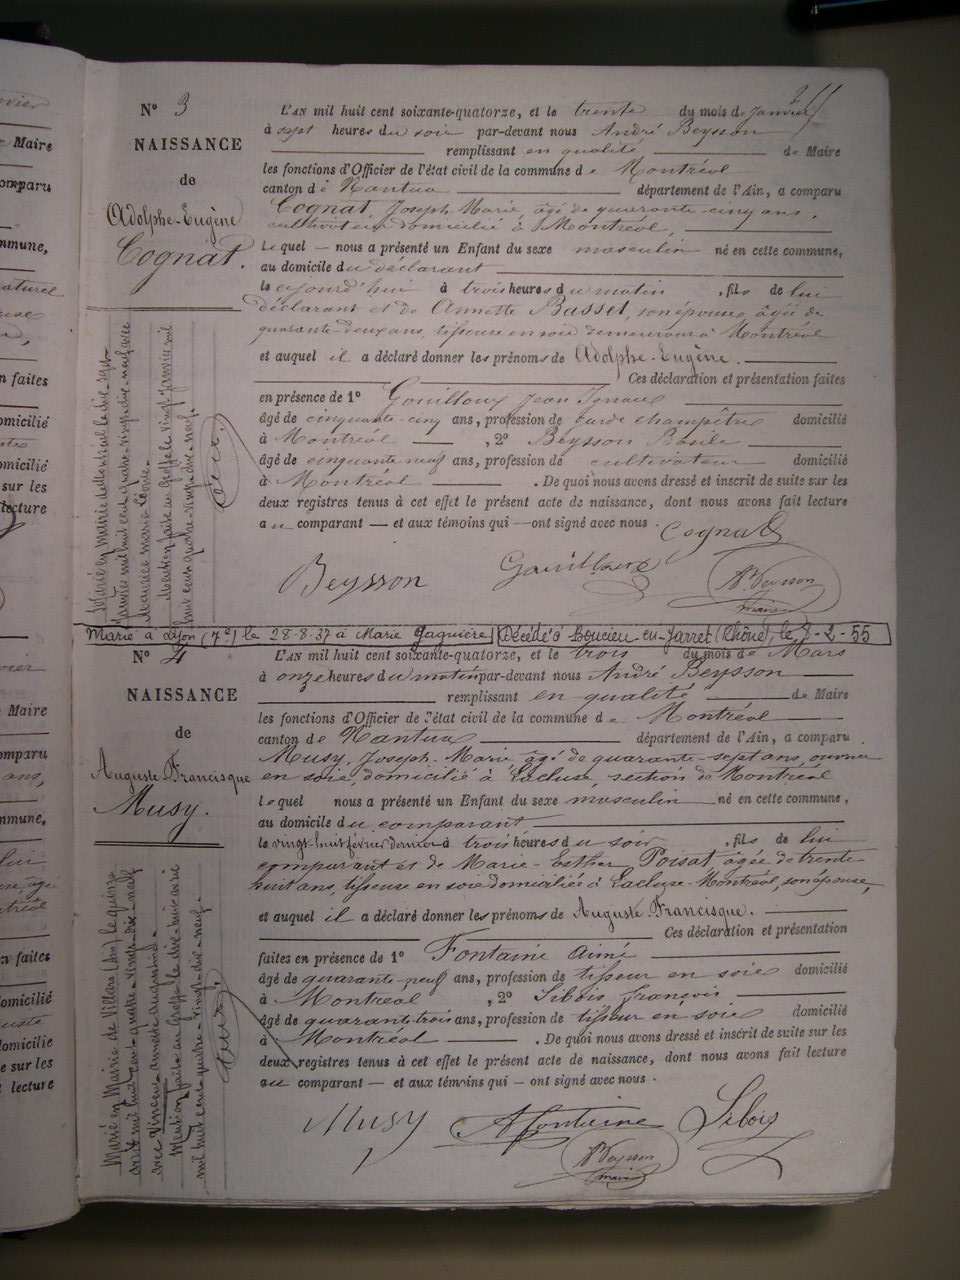 N° 3
NAISSANCE
de
Adolphe-Eugène
Cognat.
L'AN mil huit cent soixante-quatorze, et le trente du mois de Janvier
à sept heures du soir par-devant nous André Beysson
remplissant en qualité de Maire
les fonctions d'Officier de l'état civil de la commune de Montréal
canton de Nantua département de l'Ain, a comparu
Cognat, Joseph-Marie, âgé de quarante-cinq ans,
cultivateur domicilié à Montréal,
Lequel — nous a présenté un Enfant du sexe masculin né en cette commune,
au domicile du déclarant
le aujourd'hui à trois heures du matin, fils de lui
déclarant et de Annette Basset, son épouse, âgée de
quarante deux ans, tisseuse en soie demeurant à Montréal
et auquel il a déclaré donner les prénoms de Adolphe-Eugène.
Ces déclaration et présentation faites
en présence de 1° Gouilloux Jean
âgé de cinquante-cinq ans, profession de garde champêtre domicilié
à Montréal, 2° Beysson
âgé de cinquante neuf ans, profession de cultivateur domicilié
à Montréal. De quoi nous avons dressé et inscrit de suite sur les
deux registres tenus à cet effet le présent acte de naissance, dont nous avons fait lecture
au comparant — et aux témoins qui — ont signé avec nous.
Cognat
Beysson Gouilloux Ad. Beysson
maire
Marié en mairie le dix-sept
Janvier mil huit cent quatre-vingt-dix-neuf avec
Maurice Marie
Mention faite au Greffe le vingt Janvier mil
huit cent quatre-vingt-dix-neuf.
Marié à Lyon (7e) le 28-8-37 à Marie Jaquière Décédé à Soucieu-en-Jarret (Rhône), le -2-55
N° 4
NAISSANCE
de
Auguste-Francisque
Musy.
L'AN mil huit cent soixante-quatorze, et le trois du mois de Mars
à onze heures du matin par-devant nous André Beysson
remplissant en qualité de Maire
les fonctions d'Officier de l'état civil de la commune de Montréal
canton de Nantua département de l'Ain, a comparu
Musy, Joseph-Marie, âgé de quarante-sept ans, ouvrier
en soie, domicilié à Lacluse, section de Montréal
Lequel nous a présenté un Enfant du sexe masculin né en cette commune,
au domicile du comparant
le vingt-huit février dernier à trois heures du soir, fils de lui
comparant et de Marie-Esther Poisat âgée de trente
huit ans, tisseuse en soie domiciliée à Lacluse-Montréal, son épouse,
et auquel il a déclaré donner les prénoms de Auguste-Francisque.
Ces déclaration et présentation
faites en présence de 1° Fontaine Aimé
âgé de quarante-neuf ans, profession de tisseur en soie domicilié
à Montréal, 2° Sibois françois
âgé de quarante-trois ans, profession de tisseur en soie domicilié
à Montréal. De quoi nous avons dressé et inscrit de suite sur les
deux registres tenus à cet effet le présent acte de naissance, dont nous avons fait lecture
au comparant — et aux témoins qui — ont signé avec nous.
Musy A. Fontaine Sibois
Ad. Beysson
maire
Marié en Mairie de Villars (Ain) le quinze
avril mil huit cent quatre-vingt-dix-neuf
avec Vincent
Mention faite au Greffe le dix-huit avril
mil huit cent quatre-vingt-dix-neuf.